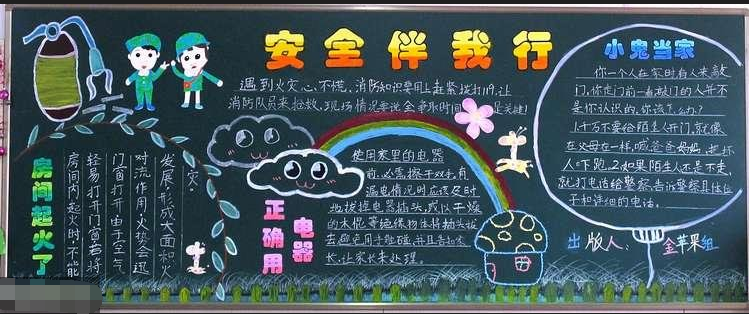 安全伴我行
遇到火灾心不慌,消防知识要用上赶紧拨打119,让
消防队员来抢救,现场情况要说全争取时间是关键!
小鬼当家
你一个人在家时有人来敲
门,你走门前一看敲门的人并不
是你认识的,你该怎么办?
1.千万不要给陌生人开门,就像
在父母在一样,喊爸爸妈妈,把坏
人吓跑。2.如果陌生人还是不走,
就打电话给警察,告诉警察具体位
子和详细的电话。
出版人:金苹果组
房间起火了
房间内起火时,不能
轻易打开门窗,若将
门窗打开由于空气
对流作用,火势会迅
发展,形成大面积火
灾。
正确用
电器
使用家里的电器
前,必需擦干双手,有
漏电情况时应该尽时
地拔掉电器插头,或以干燥
的木棍等绝缘物体将插头拔
去,避免用手触碰,并且告知家
长,让家长来处理。